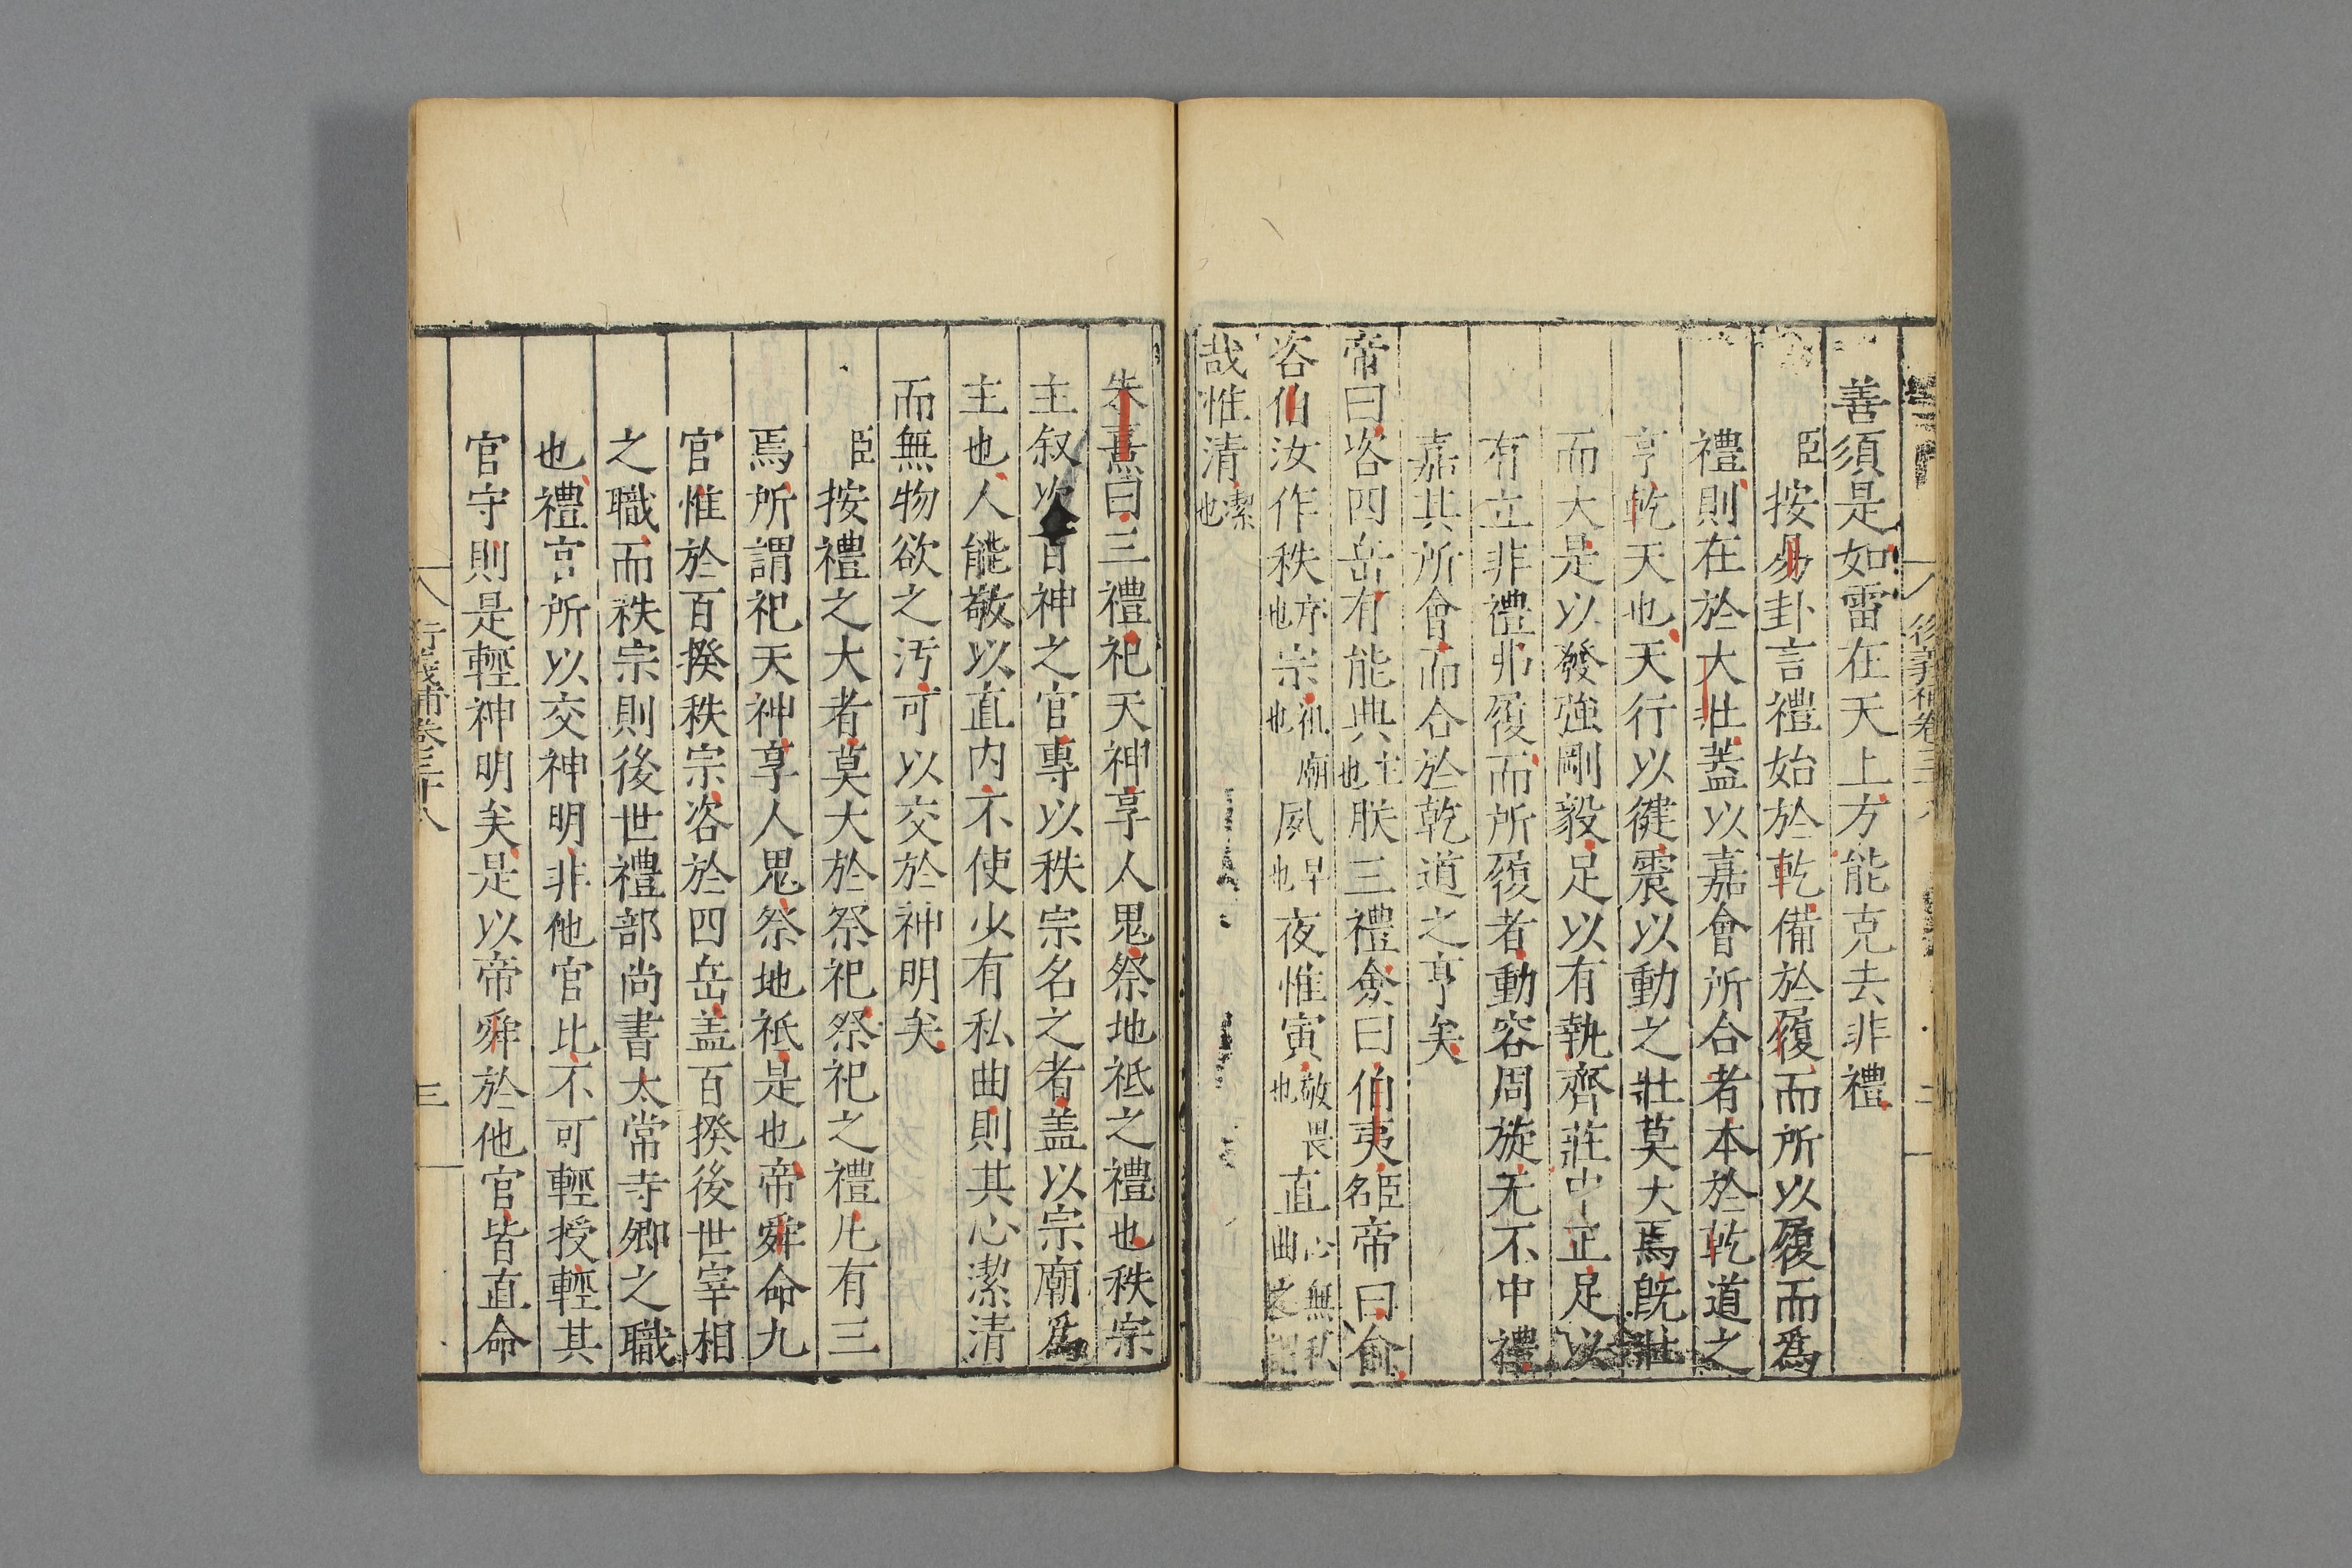 善須是如雷在天上方能克去非禮
臣按易卦言禮始於乾備於履而所以履而爲
禮則在於大壯蓋以嘉會所合者本於乾道之
亨乾天也天行以健震以動動之壯莫大焉旣壯
而大是以發強剛毅足以有執齊莊中正足以
有立非禮弗履而所履者動容周旋无不中禮
嘉其所會而合於乾道之亨矣
帝曰咨四岳有能典主也朕三禮僉曰伯夷臣名帝曰俞
咨伯汝作秩序也宗祖廟也夙早也夜惟寅敬畏也直心無私曲之謂
哉惟清潔也
朱熹曰三禮祀天神享人鬼祭地祗之禮也秩宗
主叙次百神之官專以秩宗名之者盖以宗廟爲
主也人能敬以直内不使少有私曲則其心潔清
而無物欲之汚可以交於神明矣
臣按禮之大者莫大於祭祀祭祀之禮凡有三
焉所謂祀天神享人鬼祭地祗是也帝舜命九
官惟於百揆秩宗咨於四岳盖百揆後世宰相
之職而秩宗則後世禮部尚書太常寺卿之職
也禮官所以交神明非他官比不可輕授輕其
官守則是輕神明矣是以帝舜於他官皆直命
行義補卷三十八
三